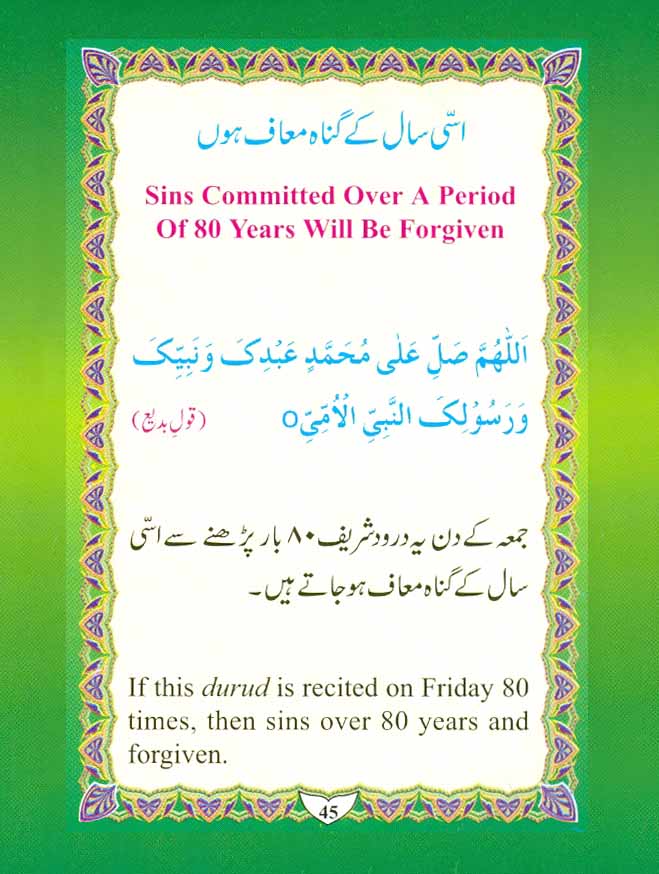 اسّی سال کے گناہ معاف ہوں
Sins Committed Over A Period
Of 80 Years Will Be Forgiven
اَللّٰھُمَّ صَلِّ عَلٰی مُحَمَّدٍ عَبْدِکَ وَنَبِیِّکَ
وَرَسُوْلِکَ النَّبِیِّ الْاُمِّیِّ o (قولِ بدیع)
جمعہ کے دن یہ درود شریف ۸۰ بار پڑھنے سے اسّی
سال کے گناہ معاف ہوجاتے ہیں۔
If this durud is recited on Friday 80
times, then sins over 80 years and
forgiven.
45